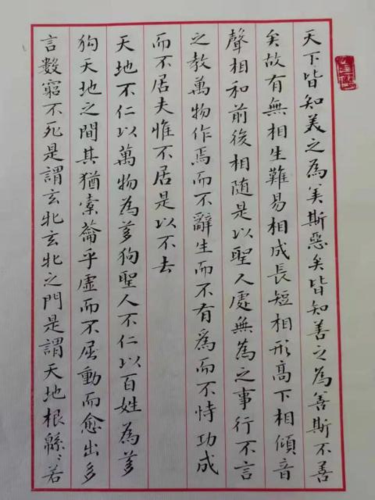 天下皆知美之為美斯惡矣皆知善之為善斯不善
矣故有無相生難易相成長短相形高下相傾音
聲相和前後相隨是以聖人處無為之事行不言
之教萬物作焉而不辭生而不有為而不恃功成
而不居夫惟不居是以不去
天地不仁以萬物為芻狗聖人不仁以百姓為芻
狗天地之間其猶索籥乎虛而不屈動而愈出多
言數窮不死是謂玄牝玄牝之門是謂天地根緜〻若